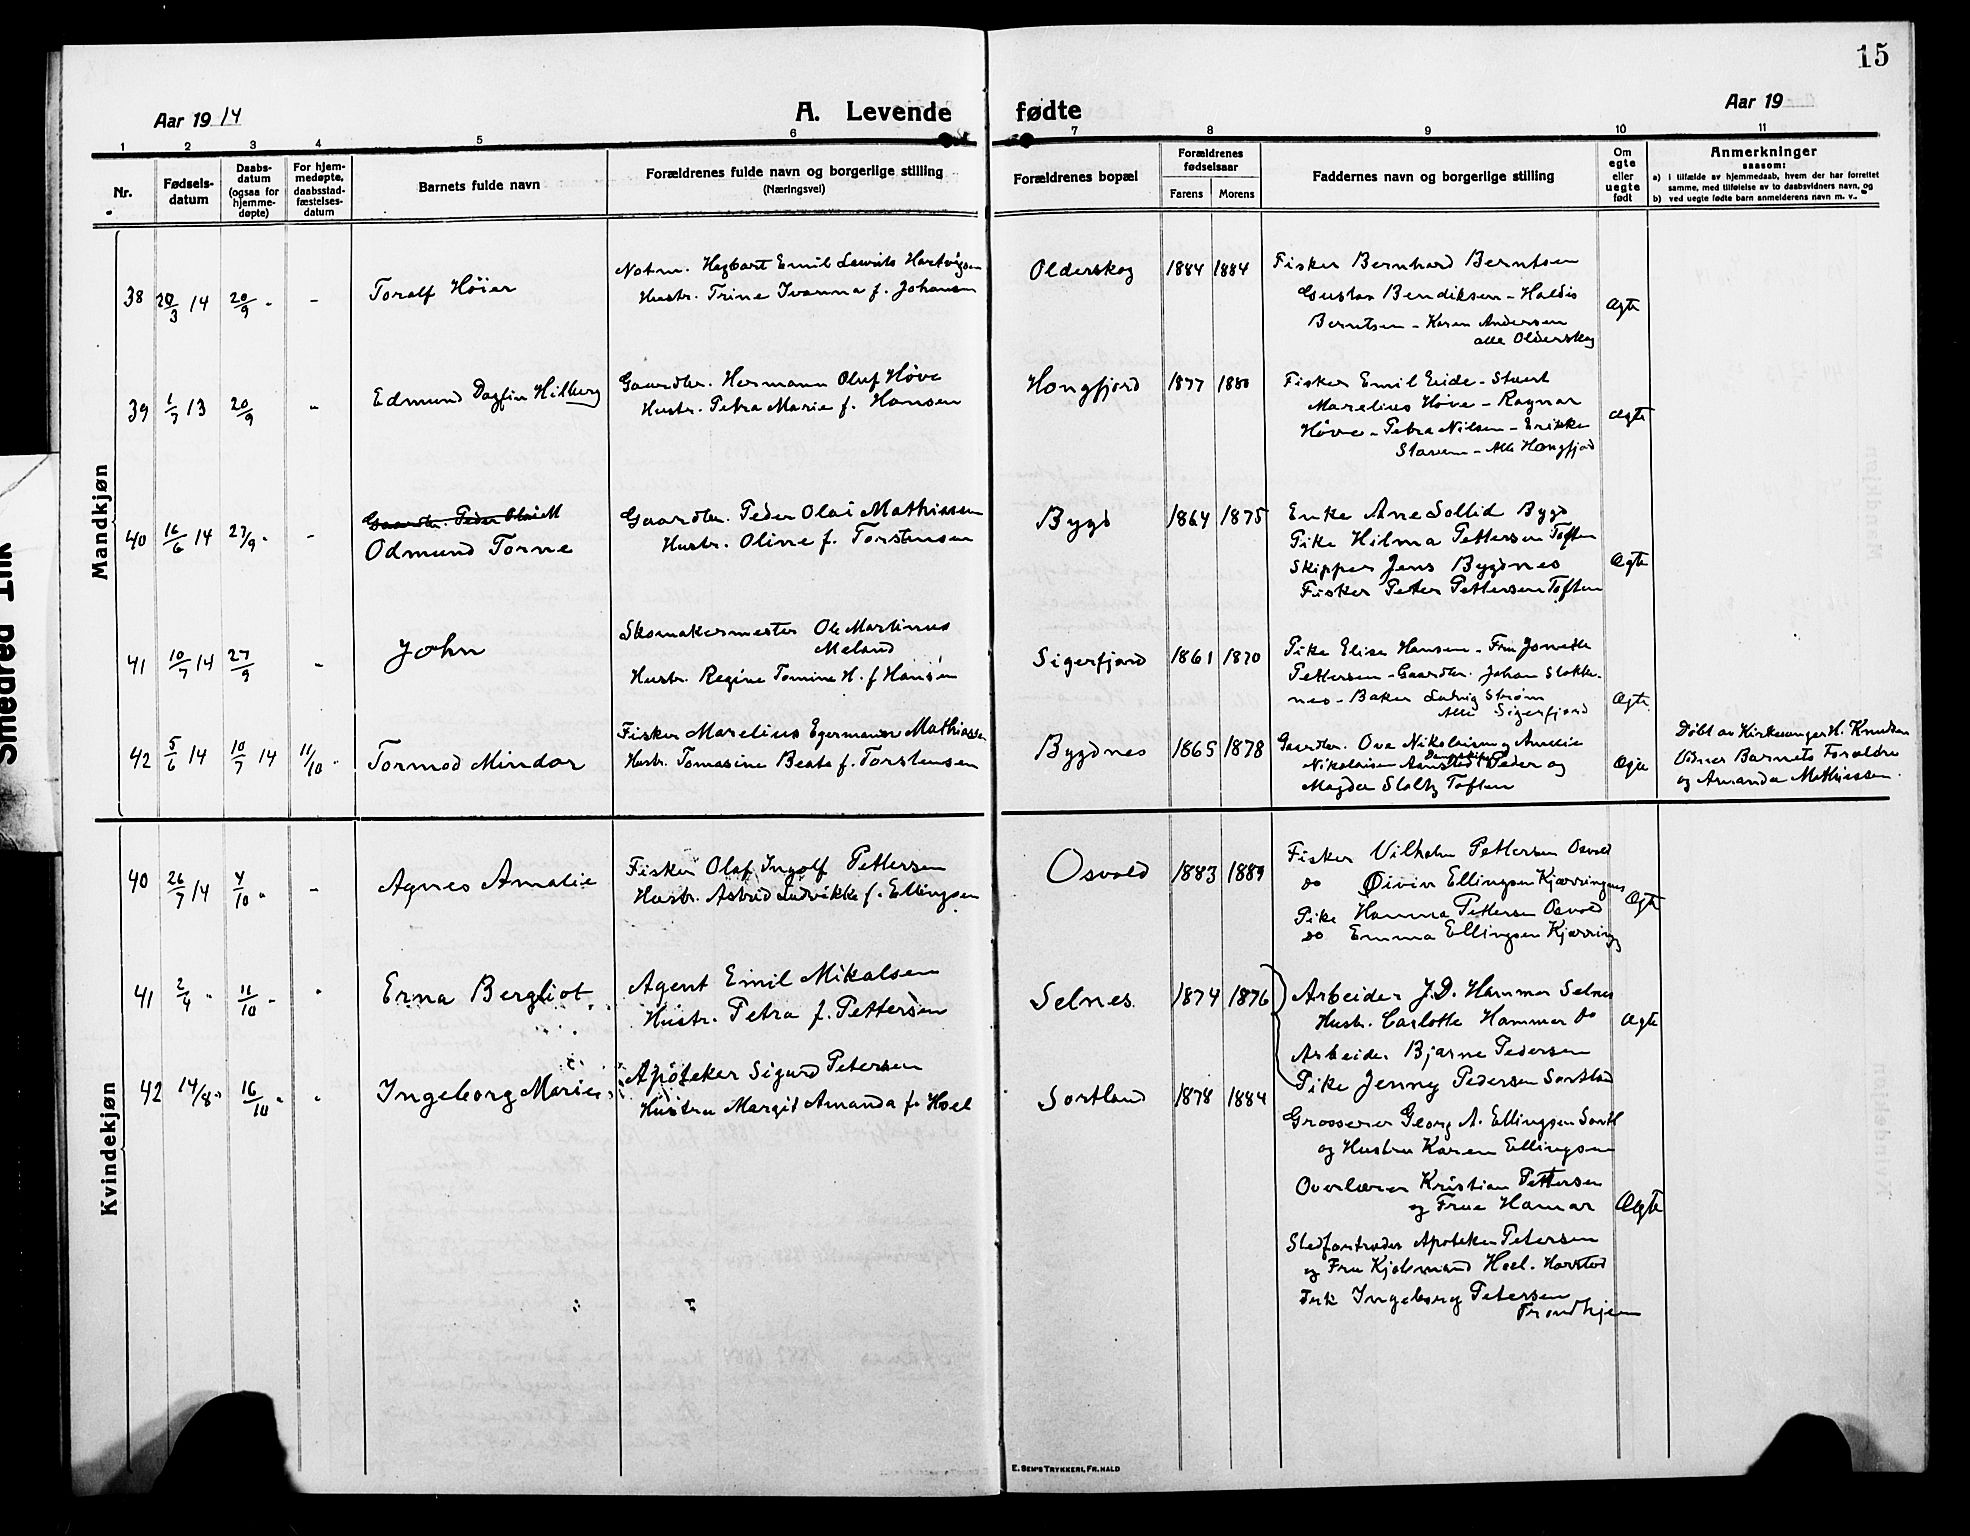 15
Aar 1914 A. Levende fødte Aar 19
1 2 3 4 5 6 7 8 9 10 11
Nr.
Fødsels-
datum
Daabs-
datum
(ogsaa for
hjemme-
døpte)
For hjem-
medøpte,
daabsstad-
fæstelses-
datum
Barnets fulde navn
Forældrenes fulde navn og borgerlige stilling
(Næringsvei)
Forældrenes bopæl
Forældrenes
fødselsaar
Farens Morens
Faddernes navn og borgerlige stilling
Om
egte
eller
uegte
født
Anmerkninger
saasom:
a) i tilfælde av hjemmedaab, hvem der har forrettet
samme, med tilføielse av to daabsvidners navn, og
b) ved uegte fødte barn anmelderens navn m. v.
Mandkjøn
38 20/3 14 20/9 " - Toralf Höier
Notm. Hagbart Emil Laurits Hartvigsen
Hustr. Trine Ivanna f. Johansen
Olderskog 1884 1884
Fisker Bernhard Berntsen
Gustav Bendiksen - Haldis
Berntsen - Karen Andersen
alle Olderskog
Ægte
39 1/7 13 20/9 " Edmund Dagfin Hilberg
Gaardbr. Hermann Oluf Høve
Hustr. Petra Marie f. Hansen
Hongfjord 1877 1880
Fisker Emil Eide -
Marelius Høve - Ragnar
Høve - Petra Nilsen - Erikke
- Alle Hongfjord
Ægte
40 16/6 14 27/9 " -
Gaardbr. Peder Olai M
Odmund Torne
Gaardbr. Peder Olai Mathissen
Hustr. Oline f. Torstensen
Bygd 1864 1875
Enke Ane Sollid Bygd
Pike Hilma Pettersen Toften
Skipper Jens Bygdnes
Fisker Peter Pettersen Toften
Ægte
41 10/7 14 27/9 - John
Skomakermester Ole Martinus
Meland
Hustr. Regine Tomine H. f Hansen
Sigerfjord 1861 1870
Pike Elise Hansen - Fru
Pettersen - Gaardbr. Johan Stokke-
nes - Baker Ludvig Strøm
Alle Sigerfjord
Ægte
42 5/6 14 10/7 14 11/10 " Tormod Mindor
Fisker Marelius Egermann Mathiassen
Hustr. Tomasine Beate f. Torstensen
Bygdnes 1865 1878
Gaardbr. Ove Nikolaisen og Amalie
Nikolaisen Peder og
Magda Stoltz Toften
Ægte
Døbt av Kirkesanger H. Knudsen
Vidner Barnets Forældre
og Amanda Mathiessen.
Kvindekjøn
40 26/7 14 4/10 " - Agnes Amalie
Fisker Olaf Ingolf Pettersen
Hustr. Astrid Ludvikke f. Ellingsen
Osvold 1883 1889
Fisker Vilhelm Pettersen Osvold
do Øivin Ellingsen Kjærringnes
Pike Hanna Pettersen Osvold
do Emma Ellingsen Kjærring
Ægte
41 2/4 " 11/10 " " Erna Bergliot
Agent Emil Mikalsen
Hustr. Petra f. Pettersen
Selnes 1874 1876
Arbeider J.D. Hammer Selnes
Hustr. Carlotte Hammer do
Arbeider Bjarne Pedersen
Pike Jenny Pedersen Sortland
Ægte
42 14/8 " 16/10 " " Ingeborg Marie
Apoteker Sigurd Petersen
Hustru Margit Amanda f. Hoel
Sortland 1878 1884
Grosserer Georg A. Ellingsen Sortl
og Hustru Karen Ellingsen
Overlærer Kristian Pettersen
og Frue Hamar
Stedfortræder Apoteker Petersen
og Fru Hoel. Harstad
Frk Ingeborg Petersen
Trondhjem
Ægte
E. Sem's Trykkeri, Fr.hald